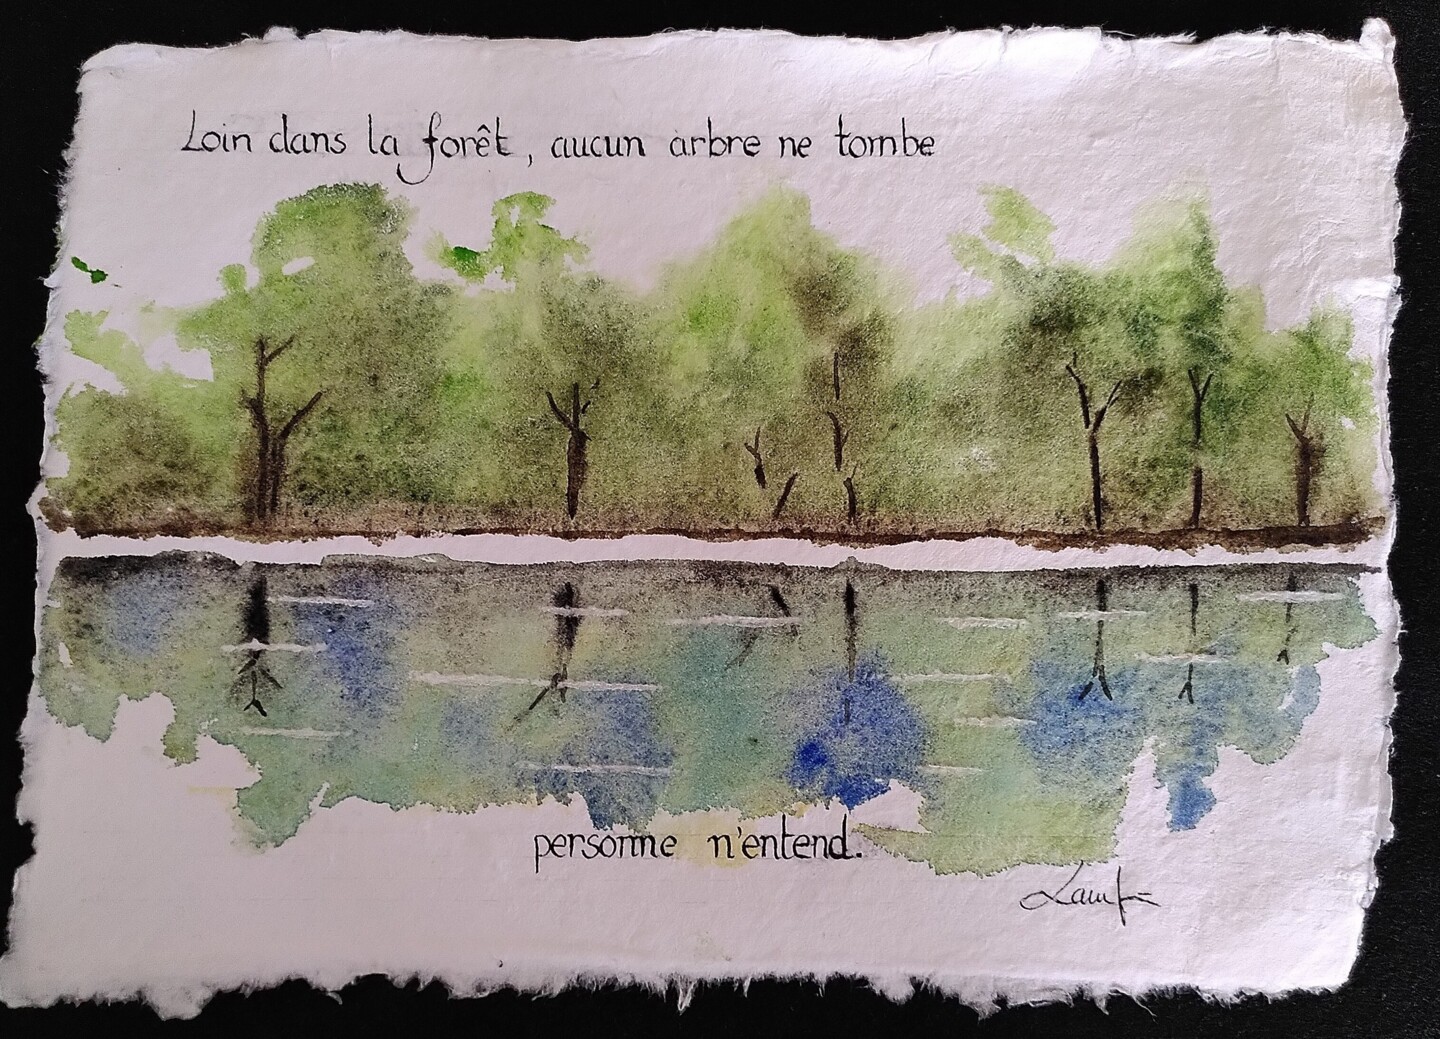 Loin dans la forêt, aucun arbre ne tombe
personne n'entend.